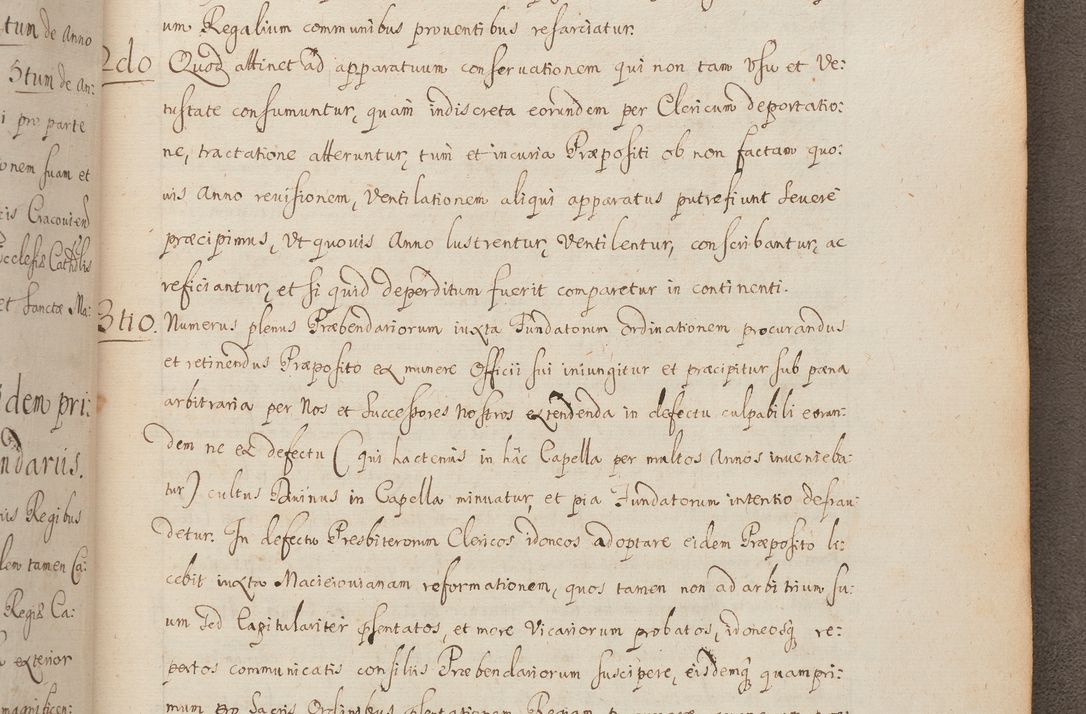 tum de Anno
5tum de An:
i pro parte
onem suam et
cis Cracovien
Ecclesis Cathlis
et Sanctæ Ma:
dem pri:
ndariis.
iis Regibus
lem tamen Ca:
Regis Ca:
exterior
magnificen:
um Regalium communibus prouentibus resarciatur.
2do Quod attinet ad apparatuum conseruationem qui non tam Vsu et Ve:
tustate consumuntur, quam indiscreta eorundem per Clericum deportatio:
ne, tractatione atteruntur, tum et incuria Præpositi ob non factam quo:
uis Anno reuisionem, Ventilationem aliqui apparatus putrefiunt Seuerè
præcipimus, Vt quouis Anno lustrentur, Ventilentur, conscribantur, ac
reficiantur, et si quid deperditum fuerit comparetur in continenti.
3tio. Numerus plenus Præbendariorum iuxta Fundatorum ordinationem procurandus
et retinendus Præposito ex munere Officii sui iniungitur et præcipitur sub pæna
arbitraria per Nos et Successores Nostros extendenda in defectu culpabili eorun-
dem ne ex defectu (qui hactenus in hâc Capella per multos Annos inuenieba-
tur) cultus Diuinus in Capella minuatur, et pia Fundatorum intentio defrau-
detur. In defectu Presbiterorum Clericos idoneos adoptare eidem Præposito li:
cebit iuxta Macieiouianam reformationem, quos tamen non ad arbitrium su:
um sed Capitulariter psentatos, et more Vicariorum probatos, idoneosq re:
pertos communicatis consiliis Præbendariorum suscipere, eisdemq quampri:
mum pro Sacris Ordinibus psentationem Regiam